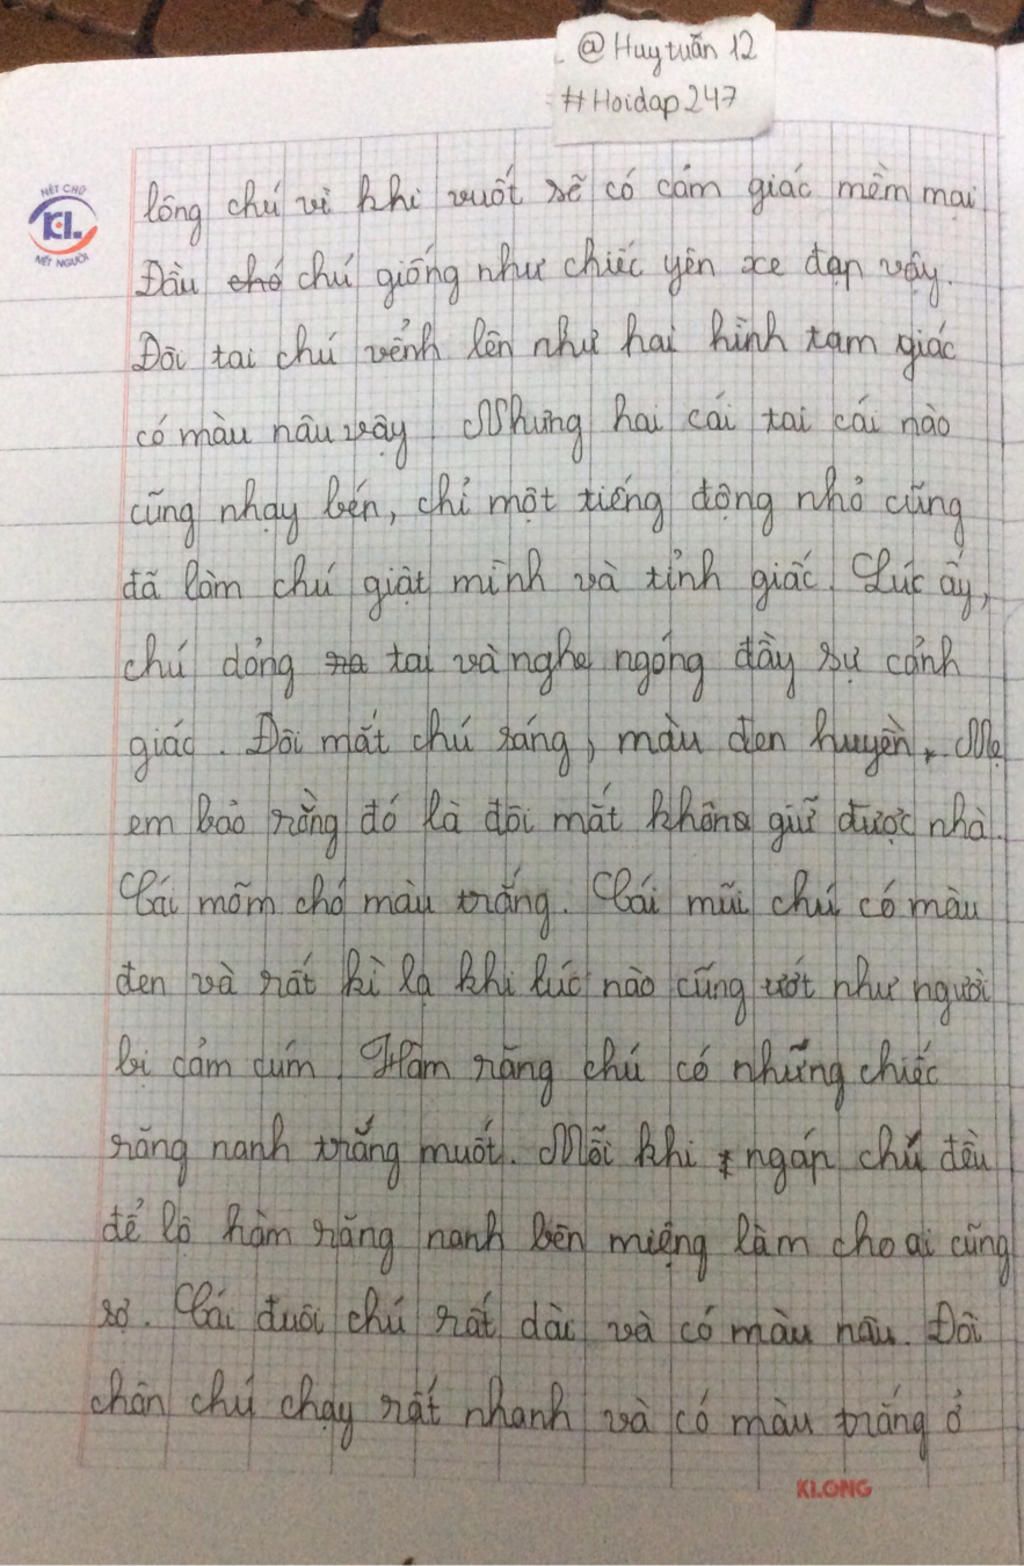 @Huytuấn 12
#Hoidap247
NÉT CHỮ
KL
NẾT NGƯỜI
lông chú vì khi vuốt sẽ có cảm giác mềm mại
Đầu chó chú giống như chiếc yên xe đạp vậy.
Đôi tai chú vểnh lên như hai hình tam giác
có màu nâu vậy. Nhưng hai cái tai cái nào
cũng nhạy bén, chỉ một tiếng động nhỏ cũng
đã làm chú giật mình và tỉnh giấc. Lúc ấy,
chú dỏng ra tai và nghe ngóng đầy sự cảnh
giác. Đôi mắt chú sáng, màu đen huyền. Mẹ
em bảo rằng đó là đôi mắt không giữ được nhà.
Cái mõm chó màu trắng. Cái mũi chú có màu
đen và rất kì lạ khi lúc nào cũng ướt như người
bị cảm cúm. Hàm răng chú có những chiếc
răng nanh trắng muốt. Mỗi khi ngáp chú đều
để lộ hàm răng nanh bên miệng làm cho ai cũng
sợ. Cái đuôi chú rất dài và có màu nâu. Đôi
chân chú chạy rất nhanh và có màu trắng ở
KLONG